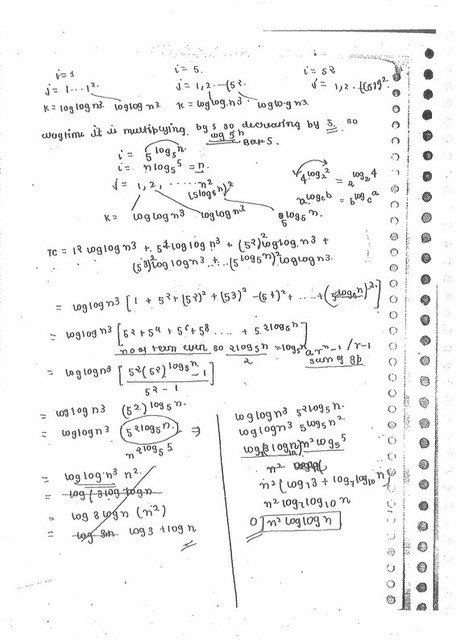 i=1 i=5. i=5²
j=1...1². j=1,2...(5². j=1,2..(5²)².
K=loglogn³ loglog n³ K=loglogn³. loglogn³.
everytime it is multiplying by 5 so decreasing by 5. so
log 5ⁿ
Base 5.
i = 5^log₅n.
i = n log₅5 = n.
j = 1,2, ...... n²
(5^log₅n)²
4^log₂2 = 2^log₂4
a^log_c b = b^log_c a
K= loglogn³ loglogn³ 5^log₅n.
TC = 1² loglogn³ + 5⁴ loglogn³ + (5²)² loglogn³ +
(5³)² loglogn³ ..... (5^log₅n)² loglogn³.
= loglogn³ [1 + 5² + (5²)² + (5³)² - (5⁴)² + .... + (5^log₅n)²]
= loglogn³ [5² + 5⁴ + 5⁶ + 5⁸ .... + 5^2log₅n]
no of term even so 2log₅n/2 = log₅n
a rⁿ-1 / r-1
sum of GP
= loglogn³ [5²(5²)^log₅n - 1 / 5²-1]
= loglogn³ (5²)^log₅n.
= loglogn³ 5^2log₅n. ⇒
n^2log₅5
= loglogn³ n².
= log 3logn (n²)
= log3 + logn
loglogn³ 5^2log₅n.
loglogn³ 5^log₅n²
n² log₅5
n²
n² (log
n² log₂log₁₀n
O [n² loglogn]